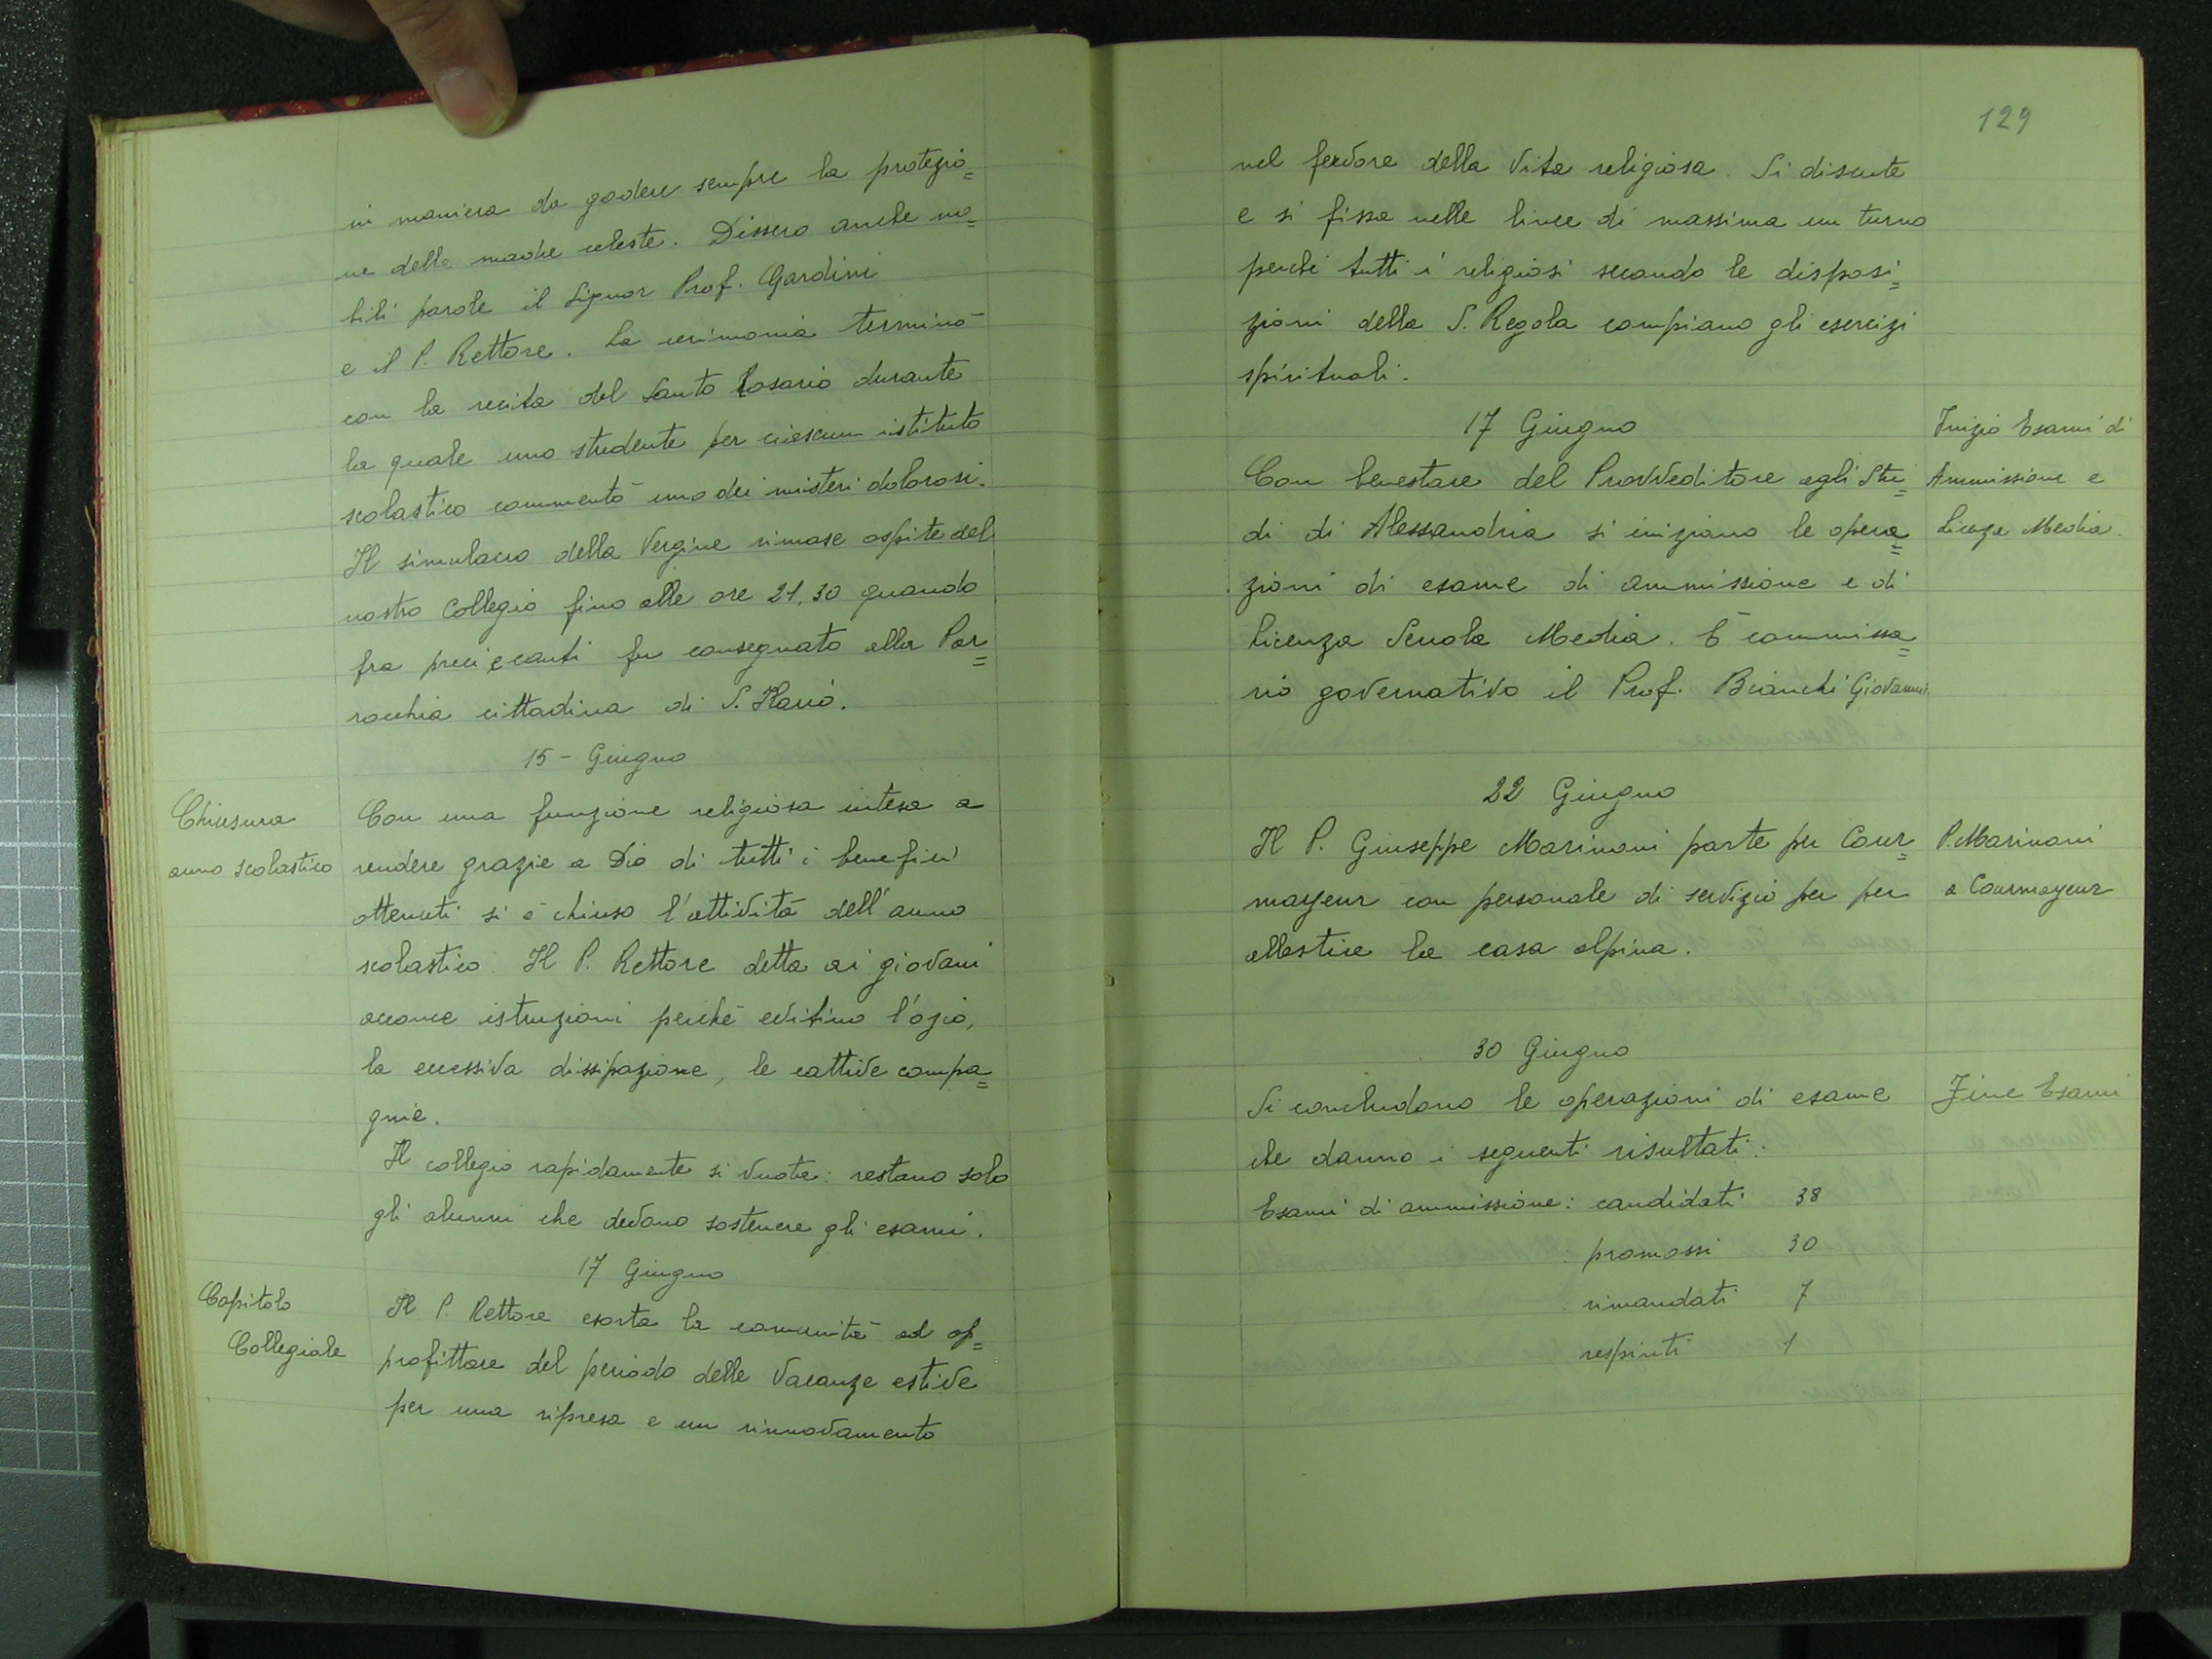 in maniera da godere sempre la protezio=
ne della madre celeste. Dissero anche no=
bili parole il Signor Prof. Gardini
e il P. Rettore. La cerimonia terminò
con la recita del Santo Rosario durante
la quale uno studente per ciascun istituto
scolastico commentò uno dei misteri dolorosi.
Il simulacro della Vergine rimase ospite del
nostro Collegio fino alle ore 21,30 quando
fra preci e canti fu consegnato alla Par=
rocchia cittadina di S. Ilario.
15 - Giugno
Chiusura
anno scolastico
Con una funzione religiosa intesa a
rendere grazie a Dio di tutti i benefici
ottenuti si è chiuso l'attività dell'anno
scolastico. Il P. Rettore detta ai giovani
acconce istruzioni perchè evitino l'ozio,
la eccessiva dissipazione, le cattive compa=
gnie.
Il collegio rapidamente si vuota: restano solo
gli alunni che devono sostenere gli esami.
17 Giugno
Capitolo
Collegiale
Il P. Rettore esorta la comunità ad ap=
profittare del periodo delle vacanze estive
per una ripresa e un rinnovamento
129
nel fervore della vita religiosa. Si discute
e si fissa nelle linee di massima un turno
perchè tutti i religiosi secondo le disposi=
zioni della S. Regola compiano gli esercizi
spirituali.
17 Giugno
Inizio Esami di
Ammissione e
Licenza Media.
Con benestare del Provveditore agli Stu=
di di Alessandria si iniziano le opera=
zioni di esame di ammissione e di
Licenza Scuola Media. È commissa=
rio governativo il Prof. Bianchi Giovanni.
22 Giugno
P. Marinoni
a Courmayeur
Il P. Giuseppe Marinoni parte per Cour=
mayeur con personale di servizio per per
allestire la casa alpina.
30 Giugno
Fine Esami
Si concludono le operazioni di esame
che danno i seguenti risultati:
Esami di ammissione: candidati 38
promossi 30
rimandati 7
respinti 1